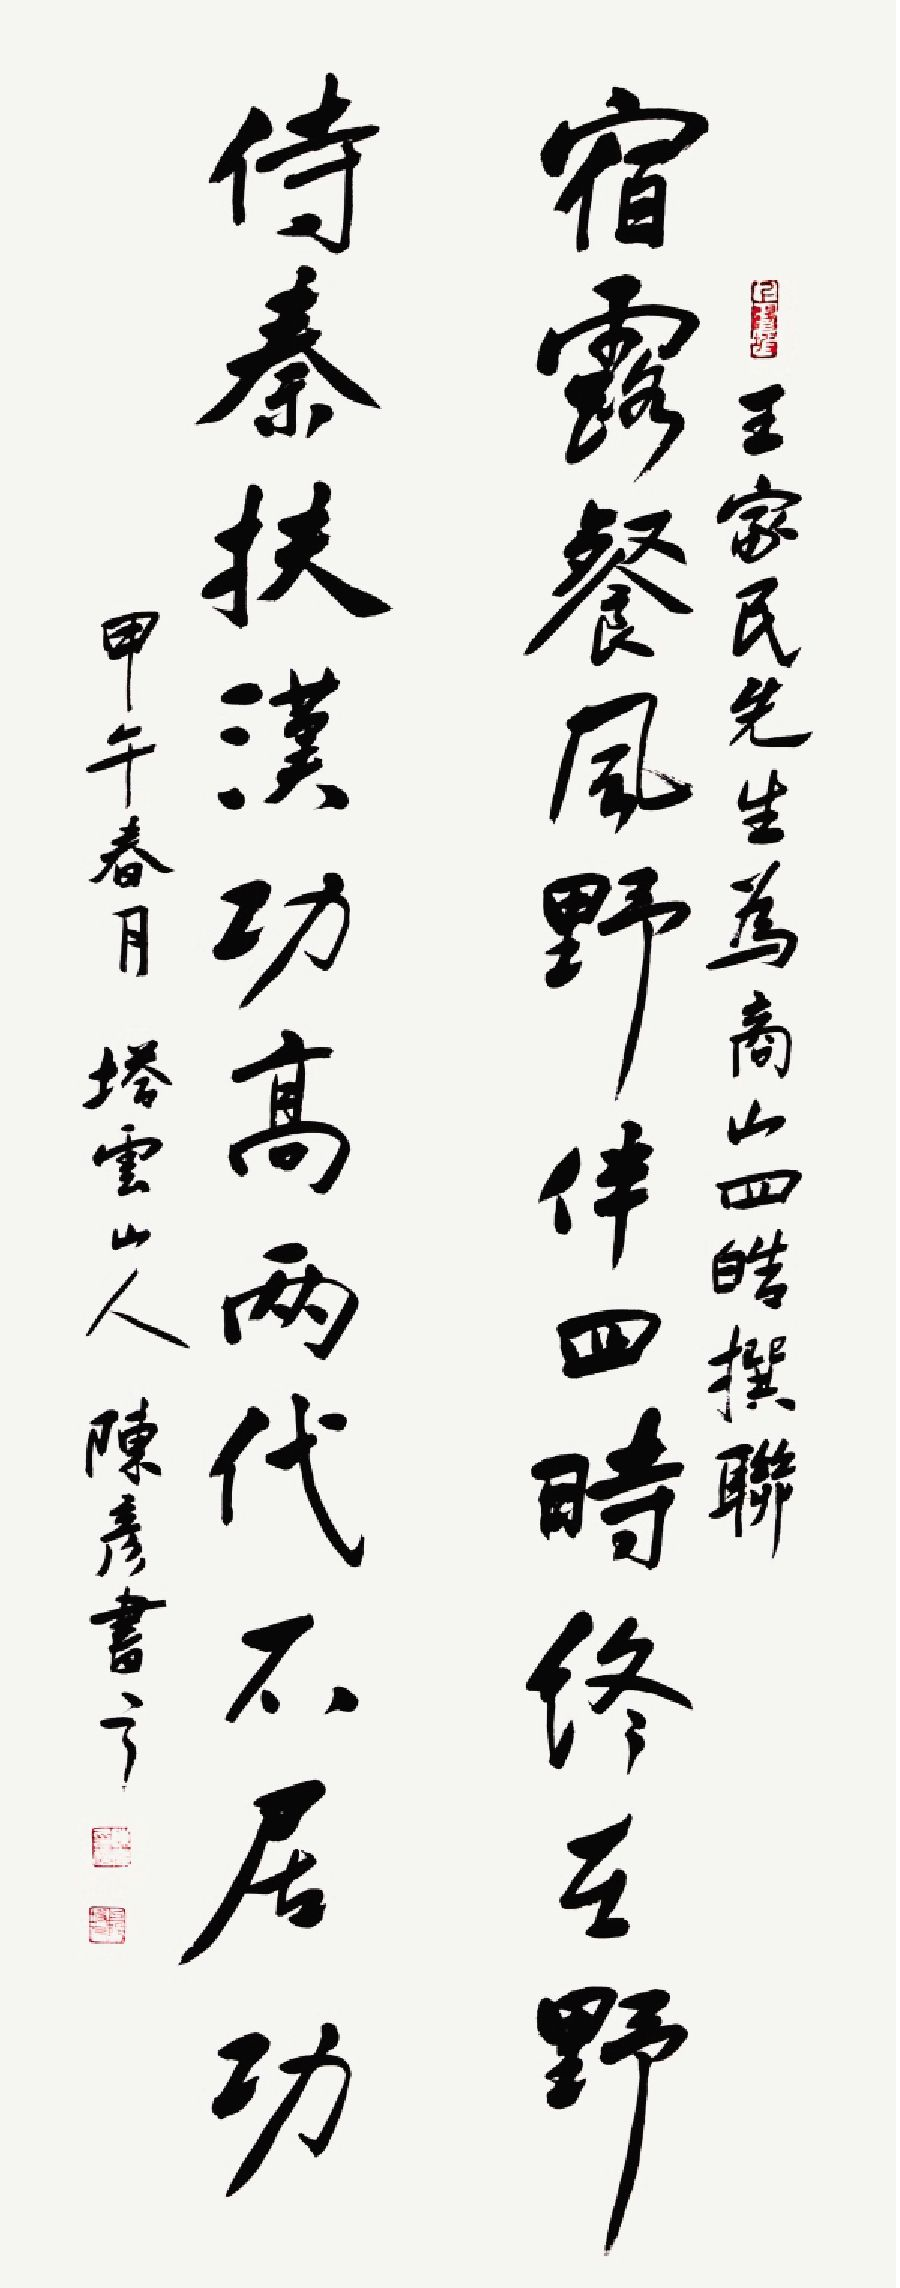 王家民先生為商山四皓撰聯
宿露餐風野伴四時終在野
侍秦扶漢功高兩代不居功
甲午春月 塔雲山人 陳彥書之